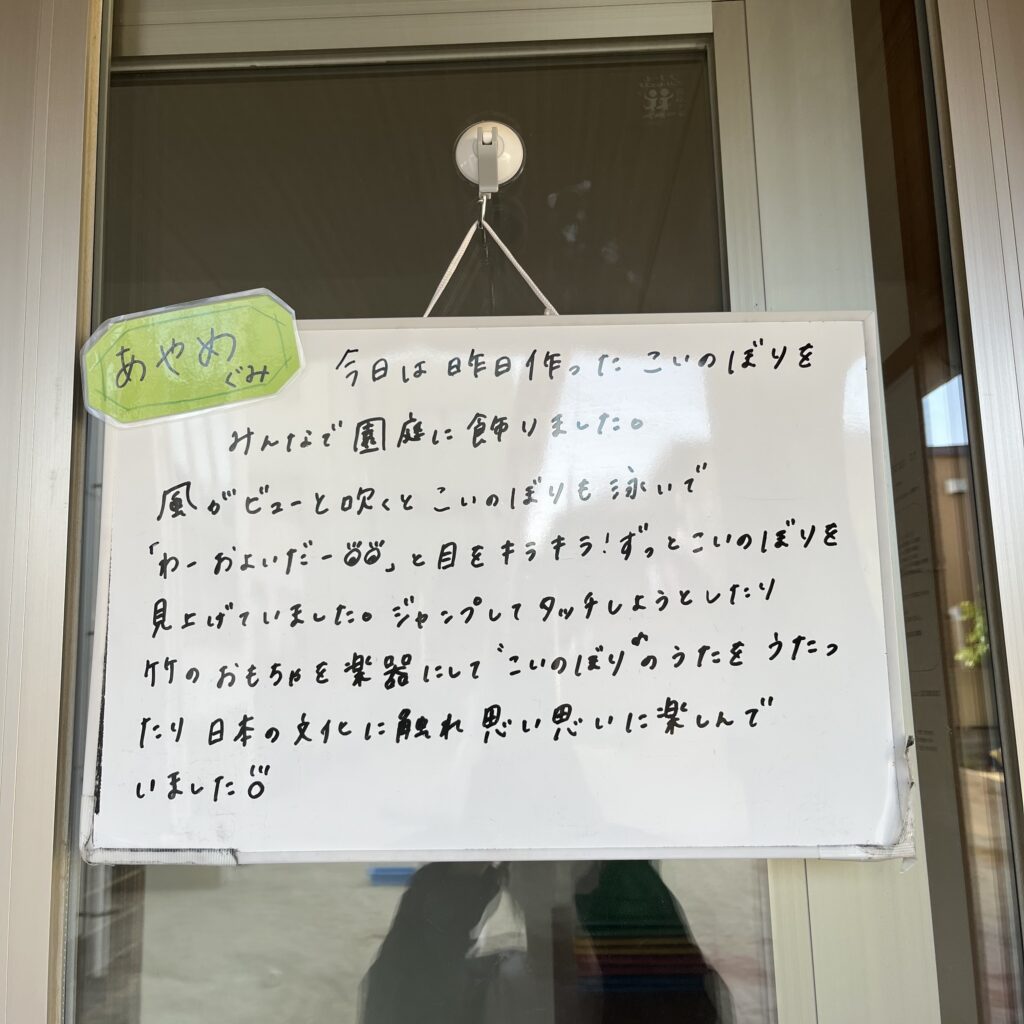 あやめ
ぐみ
今日は昨日作ったこいのぼりを
みんなで園庭に飾りました。
風がビューと吹くとこいのぼりも泳いで
「わーおよいだー!!」と目をキラキラ!ずっとこいのぼりを
見上げていました。ジャンプしてタッチしようとしたり
竹のおもちゃを楽器にして"こいのぼり"♪のうたをうたっ
たり日本の文化に触れ思い思いに楽しんで
いました!